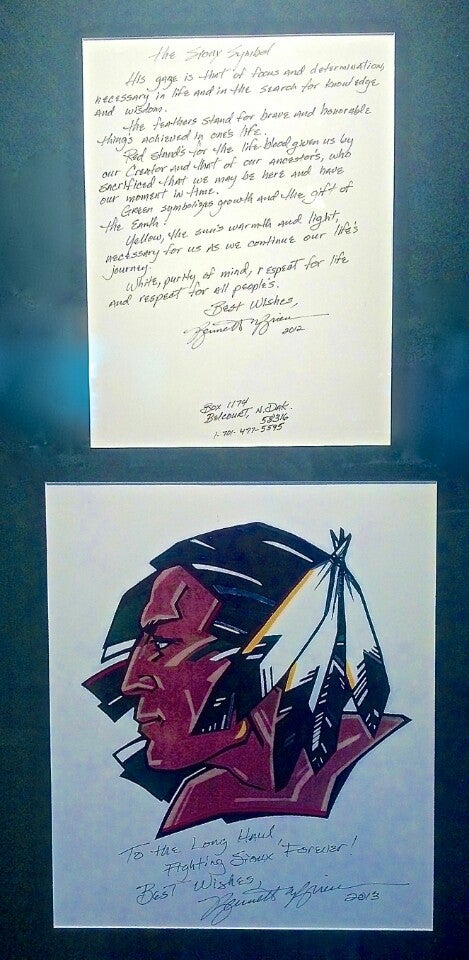 The Sioux Symbol
His gage is that of focus and determination,
necessary in life and in the search for knowledge
and wisdom.
The feathers stand for brave and honorable
thing's achieved in one's life.
Red stand's for the life-blood given us by
our Creator and that of our ancestors, who
sacrificed that we may be here and have
our moment in time.
Green symbolizes growth and the gift of
the Earth!
Yellow, the sun's warmth and light,
necessary for us as we continue our life's
journey.
White, purity of mind, respect for life
and respect for all people's.
Best Wishes,
Bennett Brien
2012
Box 1174
Belcourt, N. Dak.
58316
1-701-477-5595
To the Long Haul
Fighting Sioux 'Forever!
Best Wishes,
Bennett Brien 2013